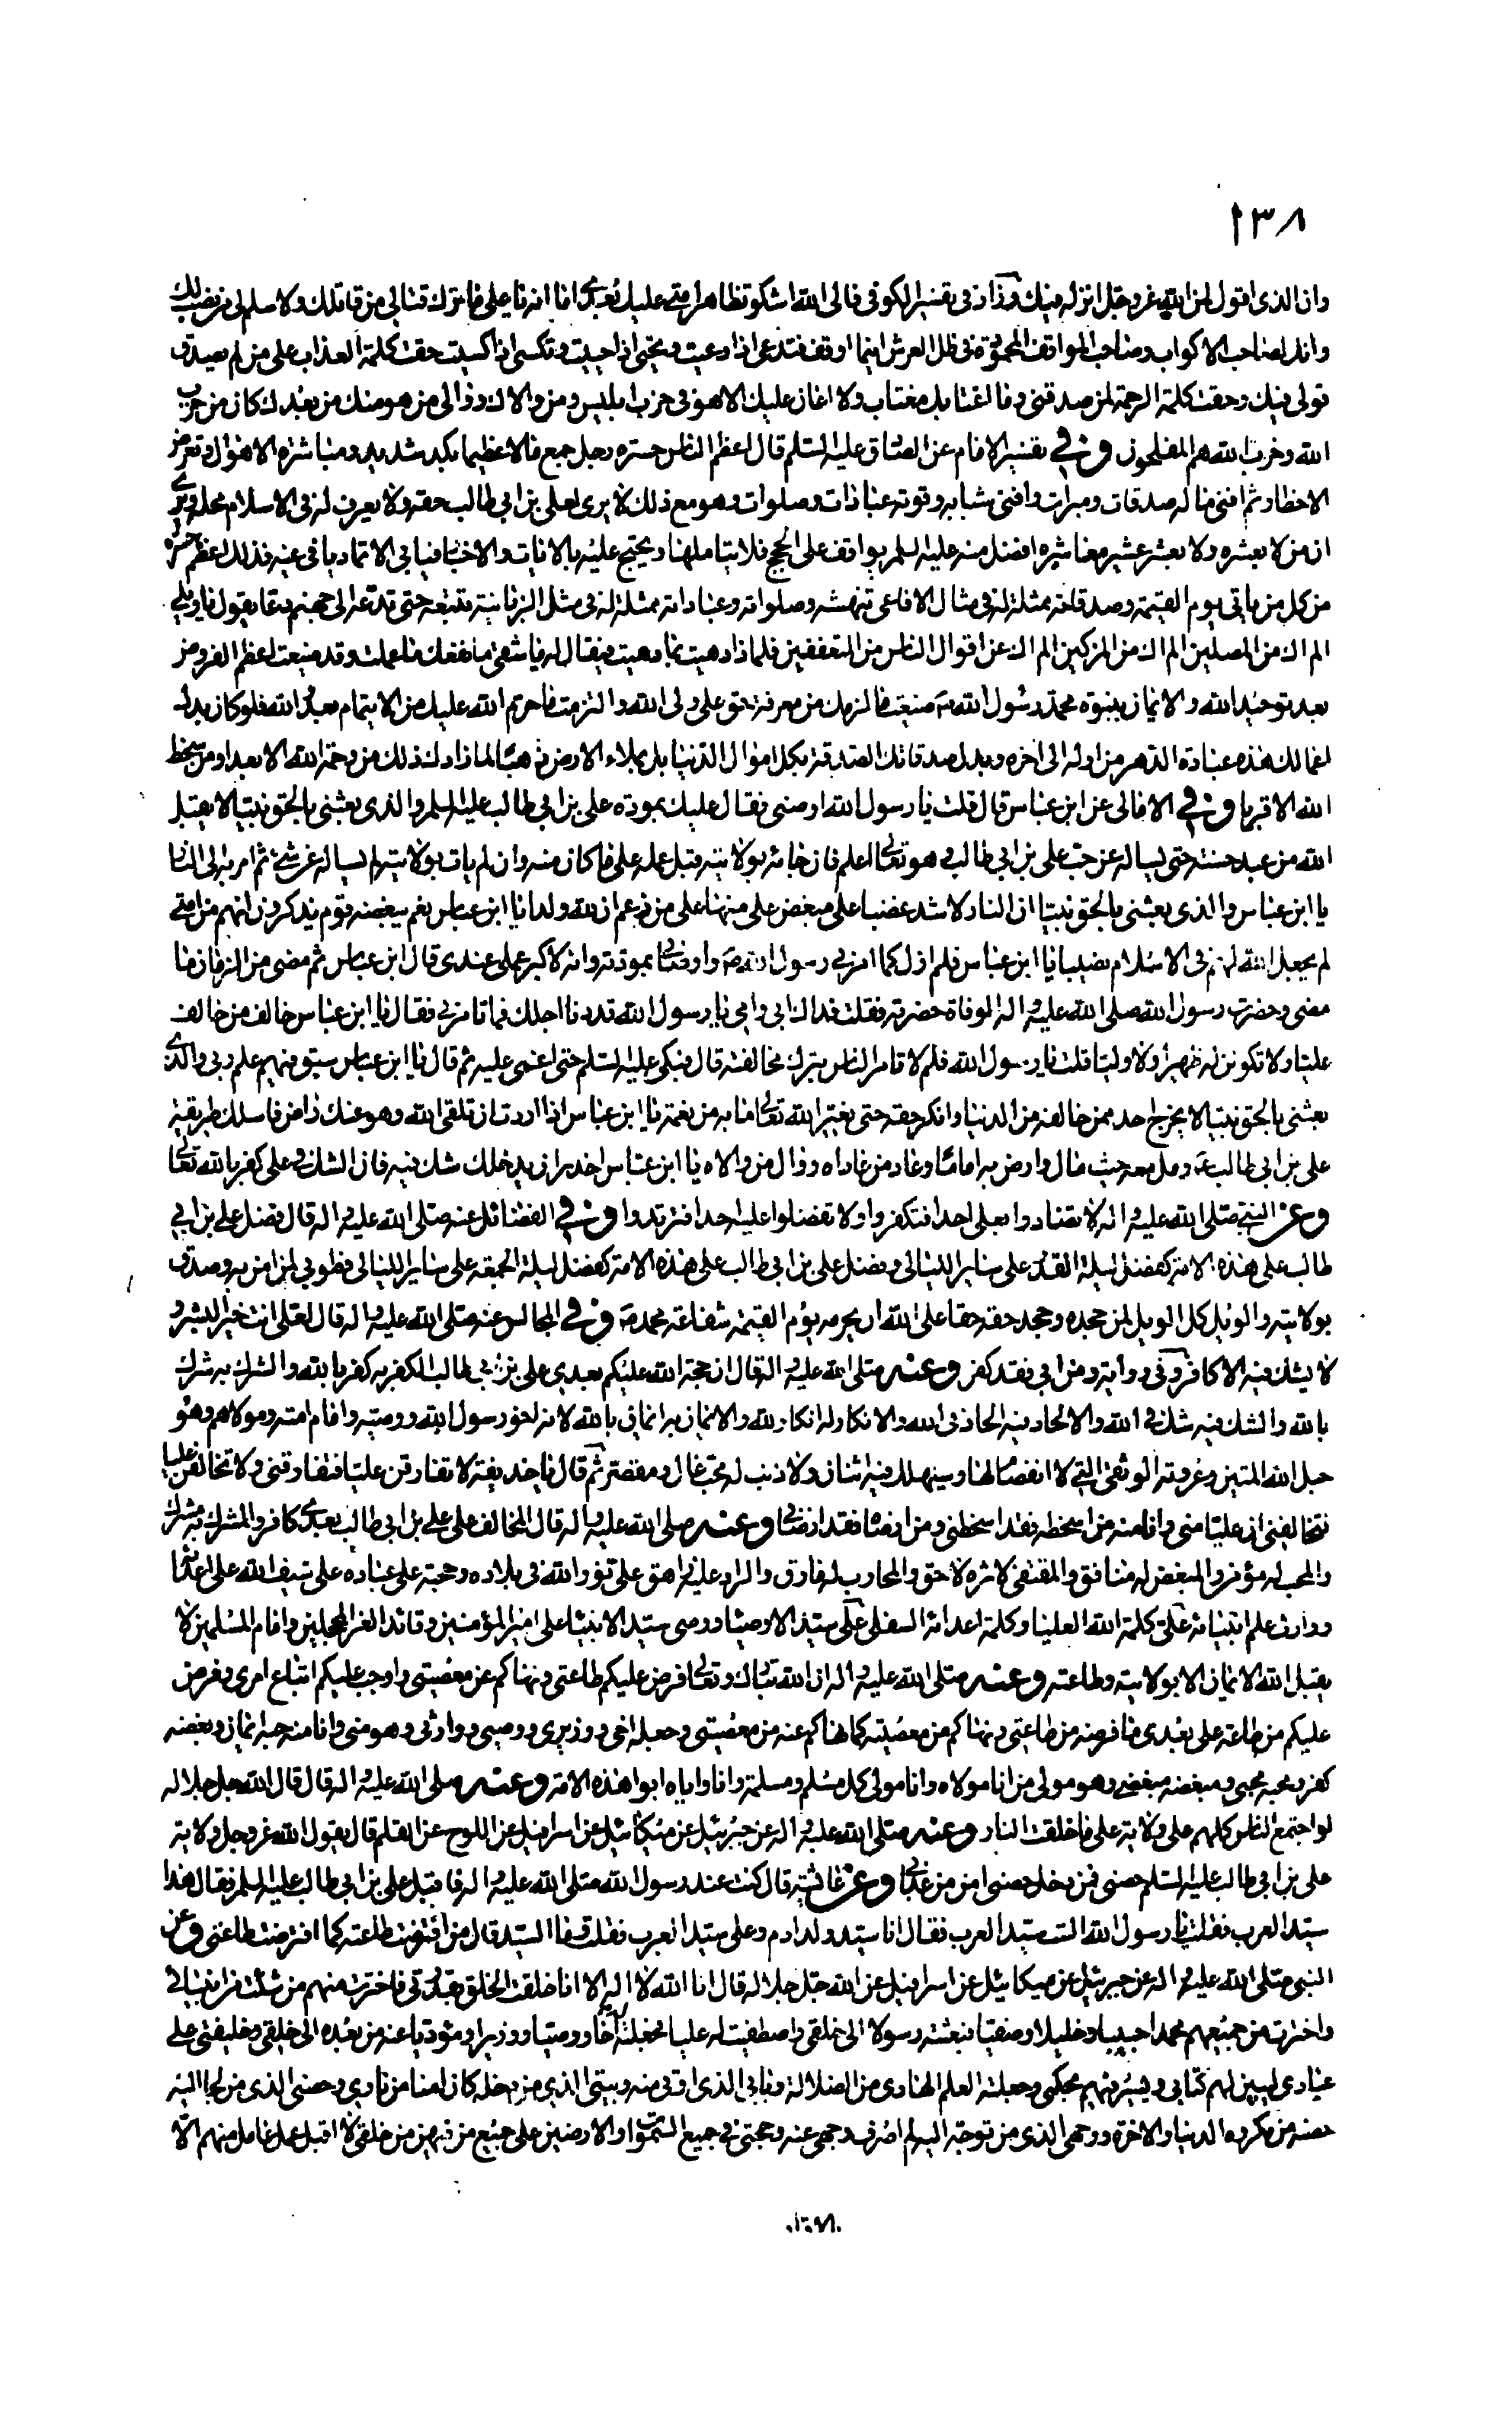 ١٣٨
وان الذى اقول لمن الله عز وجل انزله فيك وزاد فى تفسير الكوفى فالى الله اشكو تظاهر امتى عليك بعدى اما انه يا على ما ترك قتالى من قاتلك ولا سلم لى من نصب لك
وانك لصاحب الاكواب وصاحب المواقف المحمودة فى ظل العرش اينما اوقف فتدعى اذا دعيت وتحيى اذا حييت وتكسى اذا كسيت حقت كلمة العذاب على من لم يصدق
قولى فيك وحقت كلمة الرحمة لمن صدقنى وما اغتابك مغتاب ولا اعان عليك الا هو فى حزب ابليس ومن والاك ووالى من هو منك من بعدك كان من حزب
الله وحزب الله هم المفلحون وفي تفسير الامام عن الصادق عليه السلم قال اعظم الناس حسرة رجل جمع مالا عظيما بكد شديد ومباشرة الاهوال وتعرض
الاخطار ثم افنى ماله صدقات ومبرات وافنى شبابه وقوته عبادات وصلوات وهو مع ذلك لا يرى لعلى بن ابى طالب حقه ولا يعرف له فى الاسلام محله ويرى
ان من لا بعشره ولا بعشر عشير معشاره افضل منه عليه السلم يواقف على الحج فلا يتاملها ويحتج عليه بالايات والاخبار فيابى الا تماديا فى غيه فذلك اعظم حسرة
من كل من ياتى يوم القيمة وصدقاته ممثلة له فى مثال الافاعى تنهشه وصلواته وعباداته ممثلة له فى مثل الزبانية تتبعه حتى تدعه الى جهنم دعا يقول يا ويلى
الم اك من المصلين الم اك من المزكين الم اك عن اقوال الناس من المتعففين فلماذا دهيت بما دهيت فيقال له يا شقى ما نفعك ما عملت وقد ضيعت اعظم الفروض
بعد توحيد الله والايمان بنبوة محمد رسول الله ص ضيعت ما لزمك من معرفة حق على ولى الله والتزمت ما حرم الله عليك من الايتمام بعدو الله فلو كان بدل
اعمالك هذه عبادة الدهر من اوله الى اخره وبدل صدقاتك الصدقة بكل اموال الدنيا بل بملاء الارض ذهبا لما زادك ذلك من رحمة الله الا بعدا ومن سخط
الله الا قربا وفي الامالى عن ابن عباس قال قلت يا رسول الله اوصنى فقال عليك بمودة على بن ابى طالب عليه السلم والذى بعثنى بالحق نبيا لا يقبل
الله من عبد حسنة حتى يساله عن حب على بن ابى طالب وهو تعالى اعلم فان جائه بولايته قبل عمله على ما كان منه وان لم يات بولايته لم يساله عن شئ ثم امر به الى النار
يا ابن عباس والذى بعثنى بالحق نبيا ان النار لاشد غضبا على مبغض على منها على من زعم ان لله ولدا يا ابن عباس نعم يبغضه قوم يذكرون انهم من امتى
لم يجعل الله لهم فى الاسلام نصيبا يا ابن عباس فلم ازل كما امرنى رسول الله ص واوصانى بمودته وانه لاكبر عملى عندى قال ابن عباس ثم مضى من الزمان ما
مضى وحضرت رسول الله صلى الله عليه واله الوفاة حضرته فقلت فداك ابى وامى يا رسول الله قد دنا اجلك فما تامرنى فقال يا ابن عباس خالف من خالف
عليا ولا تكونن له ظهيرا ولا وليا قلت يا رسول الله فلم لا تامر الناس بترك مخالفته قال فبكى عليه السلم حتى اغمى عليه ثم قال يا ابن عباس سبق فيهم علم ربى والذى
بعثنى بالحق نبيا لا يخرج احد ممن خالفه من الدنيا وانكر حقه حتى يغير الله تعالى ما به من نعمة يا ابن عباس اذا اردت ان تلقى الله وهو عنك راض فاسلك طريقة
على بن ابى طالب ع ومل معه حيث مال وارض به اماما وعاد من عاداه ووال من والاه يا ابن عباس احذر ان يدخلك شك فيه فان الشك فى على كفر بالله تعالى
وعن النبى صلى الله عليه واله لا تضادوا بعلى احدا فتكفروا ولا تفضلوا عليه احدا فترتدوا وفي الفضائل عنه صلى الله عليه واله قال فضل على بن ابى
طالب على هذه الامة كفضل ليلة القدر على سائر الليالى وفضل على بن ابى طالب على هذه الامة كفضل ليلة الجمعة على سائر الليالى فطوبى لمن امن به وصدق
بولايته والويل كل الويل لمن جحده وجحد حقه حقا على الله ان يحرمه يوم القيمة شفاعة محمد ص وفي المجالس عنه صلى الله عليه واله قال لعلى انت خير البشر و
لا يشك فيه الا كافر وفى رواية ومن ابى فقد كفر وعنه صلى الله عليه واله قال ان حجة الله عليكم بعدى على بن ابى طالب الكفر به كفر بالله والشرك به شرك
بالله والشك فيه شك فى الله والالحاد فيه الحاد فى الله والانكار له انكار لله والايمان به ايمان بالله لانه اخو رسول الله ووصيه وامام امته ومولاهم وهو
حبل الله المتين وعروته الوثقى التى لا انفصام لها وسيهلك فيه اثنان ولا ذنب له محب غال ومقصر ثم قال يا حذيفة لا تفارقن عليا فتفارقنى ولا تخالفن عليا
فتخالفنى ان عليا منى وانا منه من اسخطه فقد اسخطنى ومن ارضاه فقد ارضانى وعنه صلى الله عليه واله قال المخالف على على بن ابى طالب بعدى كافر والمشرك به مشرك
والمحب له مؤمن والمبغض له منافق والمقتفى لاثره لاحق والمحارب له مارق والراد عليه زاهق على نور الله فى بلاده وحجته على عباده على سيف الله على اعدائه
ووارث علم انبيائه على كلمة الله العليا وكلمة اعدائه السفلى على سيد الاوصياء ووصى سيد الانبياء على امير المؤمنين وقائد الغر المحجلين وامام المسلمين لا
يقبل الله الايمان الا بولايته وطاعته وعنه صلى الله عليه واله ان الله تبارك وتعالى فرض عليكم طاعتى ونهاكم عن معصيتى واوجب عليكم اتباع امرى وفرض
عليكم من طاعة على بعدى ما فرضه من طاعتى ونهاكم من معصيته كما نهاكم عنه من معصيتى وجعله اخى ووزيرى ووصيى ووارثى وهو منى وانا منه حبه ايمان وبغضه
كفر ومحبه محبى ومبغضه مبغضى وهو مولى من انا مولاه وانا مولى كل مسلم ومسلمة وانا واياه ابوا هذه الامة وعنه صلى الله عليه واله قال قال الله جل جلاله
لو اجتمع الناس كلهم على ولاية على ما خلقت النار وعنه صلى الله عليه واله عن جبرئيل عن ميكائيل عن اسرافيل عن اللوح عن القلم قال يقول الله عز وجل ولاية
على بن ابى طالب عليه السلم حصنى فمن دخل حصنى امن من عذابى وعن عائشة قال كنت عند رسول الله صلى الله عليه واله فاقبل على بن ابى طالب عليه السلم فقال هذا
سيد العرب فقلت يا رسول الله الست سيد العرب فقال انا سيد ولد ادم وعلى سيد العرب فقلت وما السيد قال من افترضت طاعته كما افترضت طاعتى وعن
النبى صلى الله عليه واله عن جبرئيل عن ميكائيل عن اسرافيل عن الله جل جلاله قال انا الله لا اله الا انا خلقت الخلق بقدرتى فاخترت منهم من شئت من انبيائى
واخترت من جميعهم محمدا حبيبا وخليلا وصفيا فبعثته رسولا الى خلقى واصطفيت له عليا فجعلته له اخا ووصيا ووزيرا ومؤديا عنه من بعده الى خلقى وخليفتى على
عبادى ليبين لهم كتابى ويسير فيهم بحكمى وجعلته العلم الهادى من الضلالة وبابى الذى اوتى منه وبيتى الذى من دخله كان امنا من نارى وحصنى الذى من لجا اليه
حصنه من مكروه الدنيا والاخرة ووجهى الذى من توجه اليه لم اصرف وجهى عنه وحجتى فى جميع السموات والارضين على جميع من فيهن من خلقى لا اقبل عمل عامل منهم الا